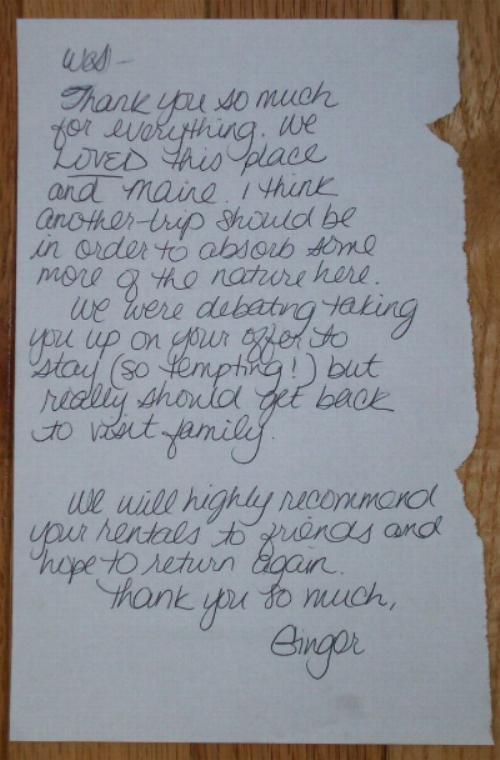 Wes -
Thank you so much
for everything. We
LOVED this place
and Maine. I think
another trip should be
in order to absorb some
more of the nature here.
We were debating taking
you up on your offer to
stay (so tempting!) but
really should get back
to visit family.
We will highly recommend
your rentals to friends and
hope to return again.
Thank you so much,
Ginger